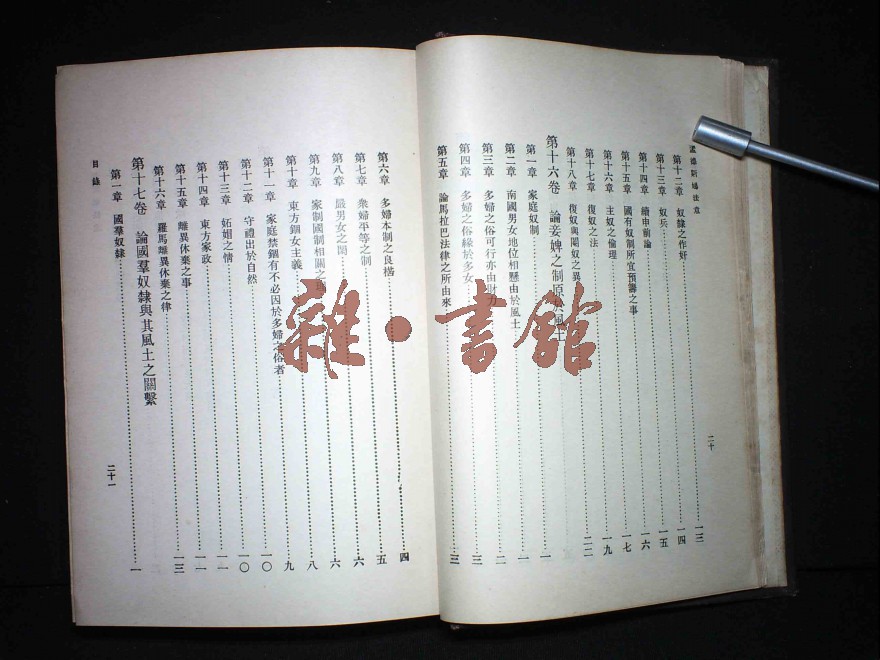 孟德斯鳩法意
第十二章 奴隸之作奸 一三
第十三章 奴兵 一四
第十四章 續申前論 一五
第十五章 國有奴制所宜預籌之事 一六
第十六章 主奴之倫理 一七
第十七章 復奴之法 一九
第十八章 復奴與閹奴之異 二二
第十六卷 論妾婢之制原於風土
第一章 家庭奴制 一
第二章 南國男女地位相懸由於風土 一
第三章 多婦之俗可行亦由財力 二
第四章 多婦之俗緣於多女 三
第五章 論馬拉巴法律之所由來 三
二十
第六章 多婦本制之良楛 四
第七章 衆婦平等之制 五
第八章 嚴男女之閑 六
第九章 家制國制相關之 六
第十章 東方錮女主義 八
第十一章 家庭禁錮有不必因於多婦之俗者 九
第十二章 守禮出於自然 一〇
第十三章 妬媢之情 一〇
第十四章 東方家政 一一
第十五章 離異休棄之事 一一
第十六章 羅馬離異休棄之律 一三
第十七卷 論國羣奴隸與其風土之關繫
第一章 國羣奴隸 一
目錄
二十一
雜·書館